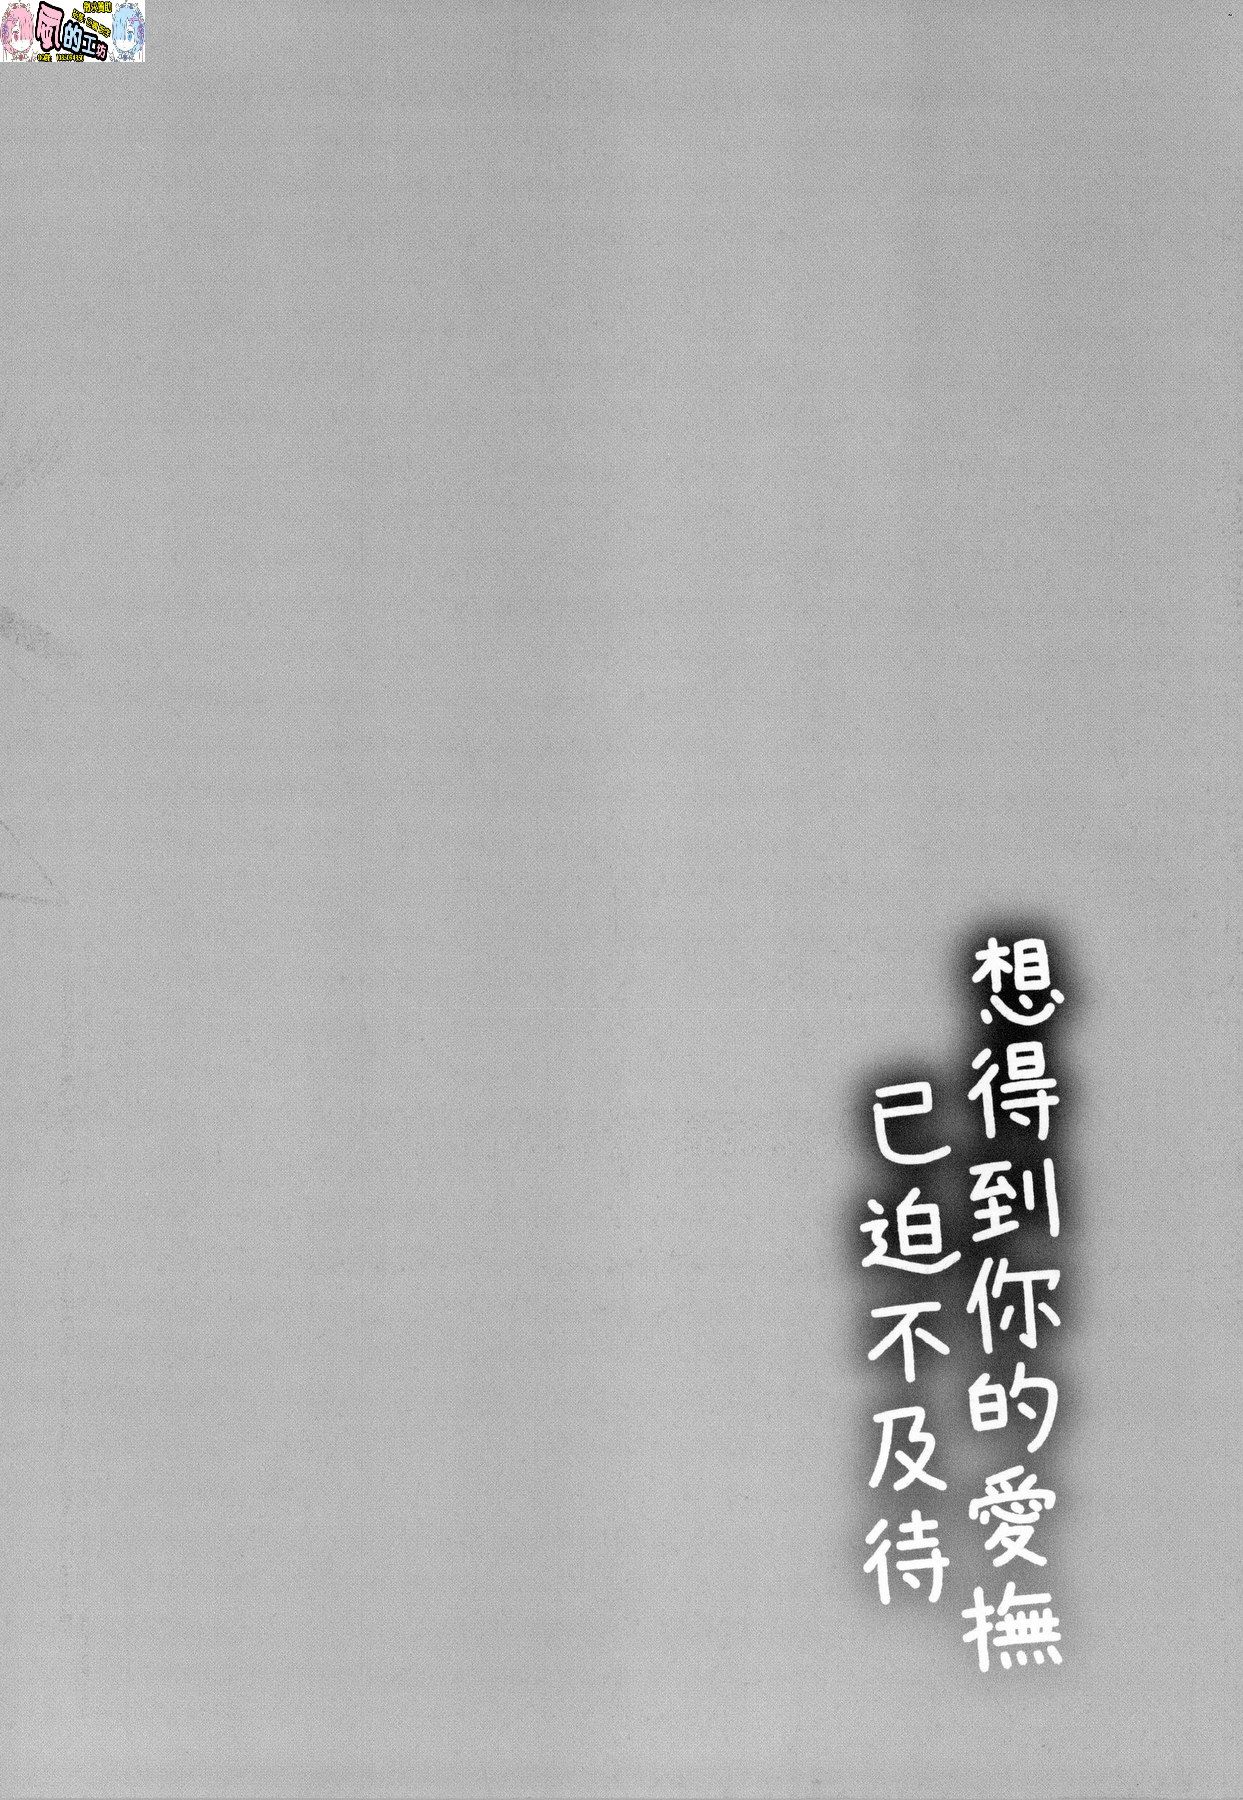 想得到你的愛撫
已迫不及待
風的工坊